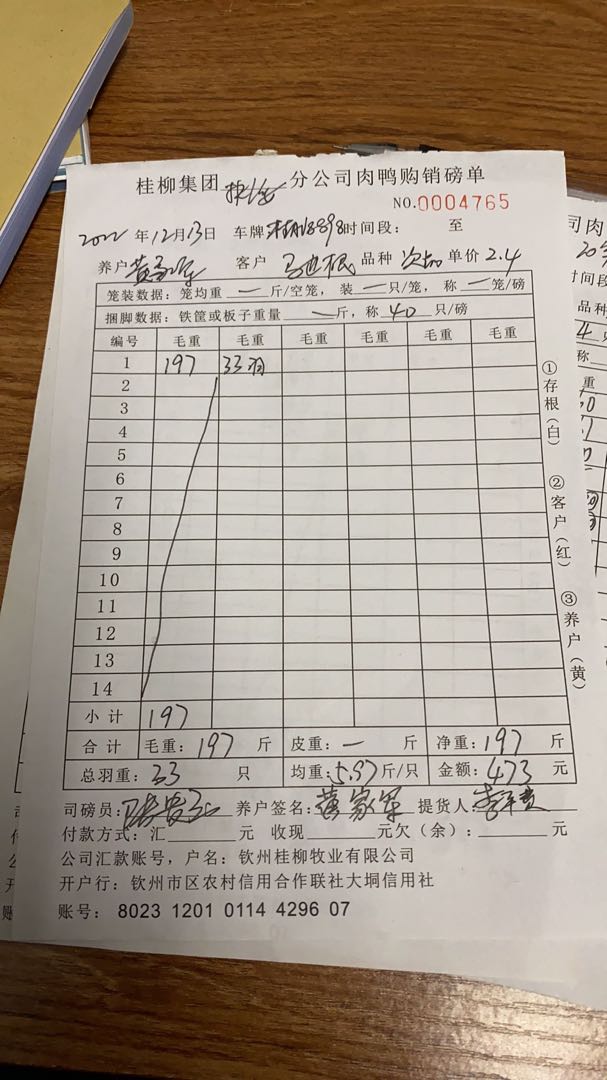 桂柳集团 分公司肉鸭购销磅单
NO.0004765
2022年12月13日 车牌 时间段: 至
养户 黄家军 客户 马世根 品种 次品 单价 2.4
笼装数据:笼均重 一 斤/空笼,装 一 只/笼,称 一 笼/磅
捆脚数据:铁筐或板子重量 一 斤,称 40 只/磅
编号 毛重 毛重 毛重 毛重 毛重 毛重
1 197 33羽
2
3
4
5
6
7
8
9
10
11
12
13
14
小计 197
合计 毛重:197 斤 皮重:一 斤 净重:197 斤
总羽重:33 只 均重:5.97 斤/只 金额:473 元
司磅员: 养户签名:黄家军 提货人:
付款方式:汇 元 收现 元欠(余): 元
公司汇款账号,户名:钦州桂柳牧业有限公司
开户行:钦州市区农村信用合作联社大垌信用社
账号: 8023 1201 0114 4296 07
①存根(白)
②客户(红)
③养户(黄)